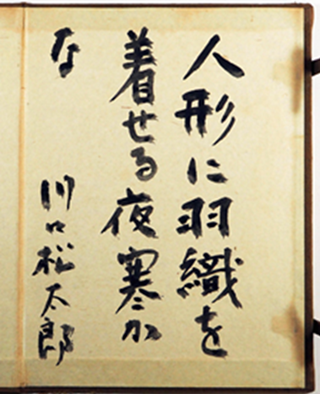 人形に羽織を
着せる夜寒か
な
川口松太郎